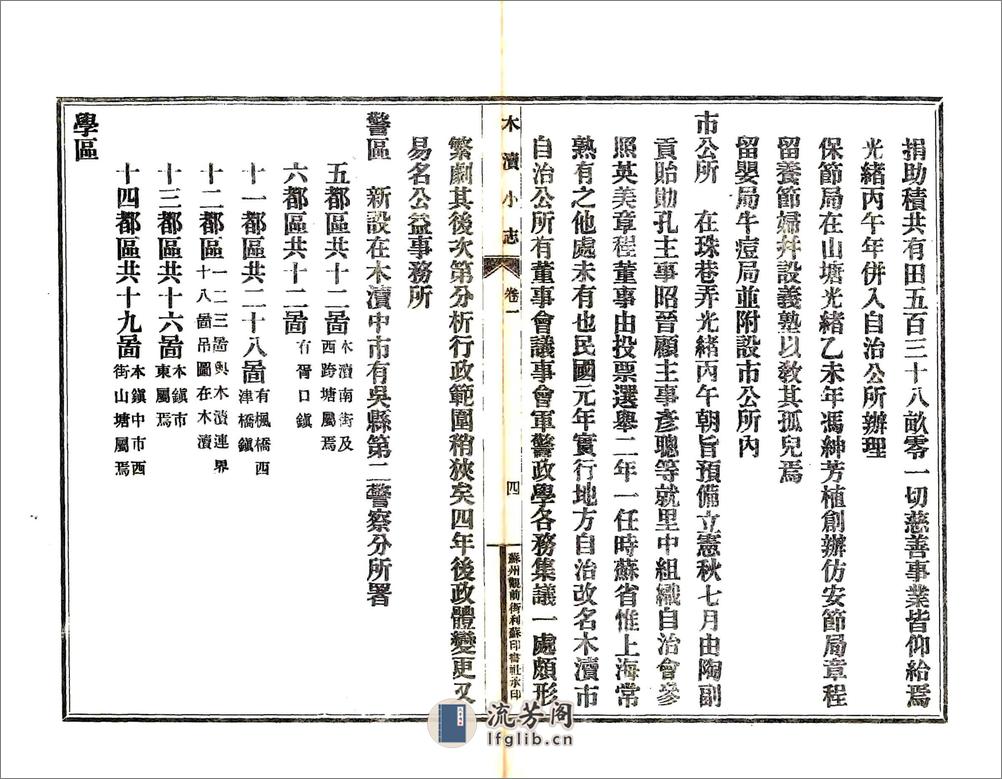 捐助積共有田五百三十八畝零一切慈善事業皆仰給焉
光緒丙午年併入自治公所辦理
保節局在山塘光緒乙未年馮紳芳植創辦仿安節局章程
留養節婦幷設義塾以敎其孤兒焉
留嬰局牛痘局並附設市公所內
市公所　在珠巷弄光緒丙午朝旨預備立憲秋七月由陶副
貢貽勛孔主事昭晉顧主事彥聰等就里中組織自治會參
照英美章程董事由投票選舉二年一任時蘇省惟上海常
熟有之他處未有也民國元年實行地方自治改名木瀆市
自治公所有董事會議事會軍警政學各務集議一處頗形
木瀆小志
卷一
四
蘇州觀前街利蘇印書社承印
繁劇其後次第分析行政範圍稍狹矣四年後政體變更又
易名公益事務所
警區　新設在木瀆中市有吳縣第二警察分所署
五都區共十二啚木瀆南街及
西跨塘屬焉
六都區共十二啚有胥口鎮
十一都區共二十八啚有楓橋西
津橋鎮
十二都區一二三啚與木瀆連界
十八啚吊圖在木瀆
十三都區共十六啚木鎮市
東屬焉
十四都區共十九啚木鎮中市西
街山塘屬焉
學區
流芳阁
lfglib.cn